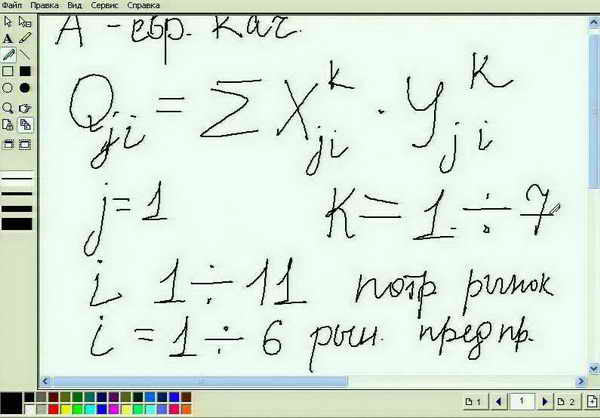 Файл Правка Вид Сервис Справка
А - евр. кач.
Qji = Σ X^k_ji · Y^k_ji
j = 1 K = 1 ÷ 7
i 1 ÷ 11 потр рынок
i = 1 ÷ 6 рын. предпр.
1 1 2